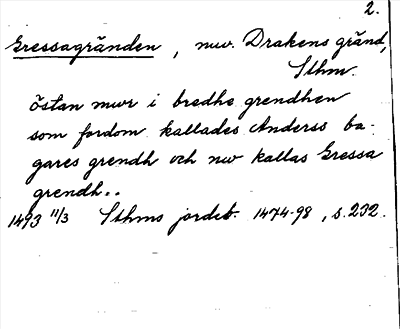 2.
Gressagränden, nuv. Drakens gränd,
Sthm.
östan mwr i bredhe grendhen
som fordom kallades Anderss ba-
gares grendh och nw kallas Gressa
grendh..
1493 11/3 Sthms jordeb. 1474-98, s. 232.